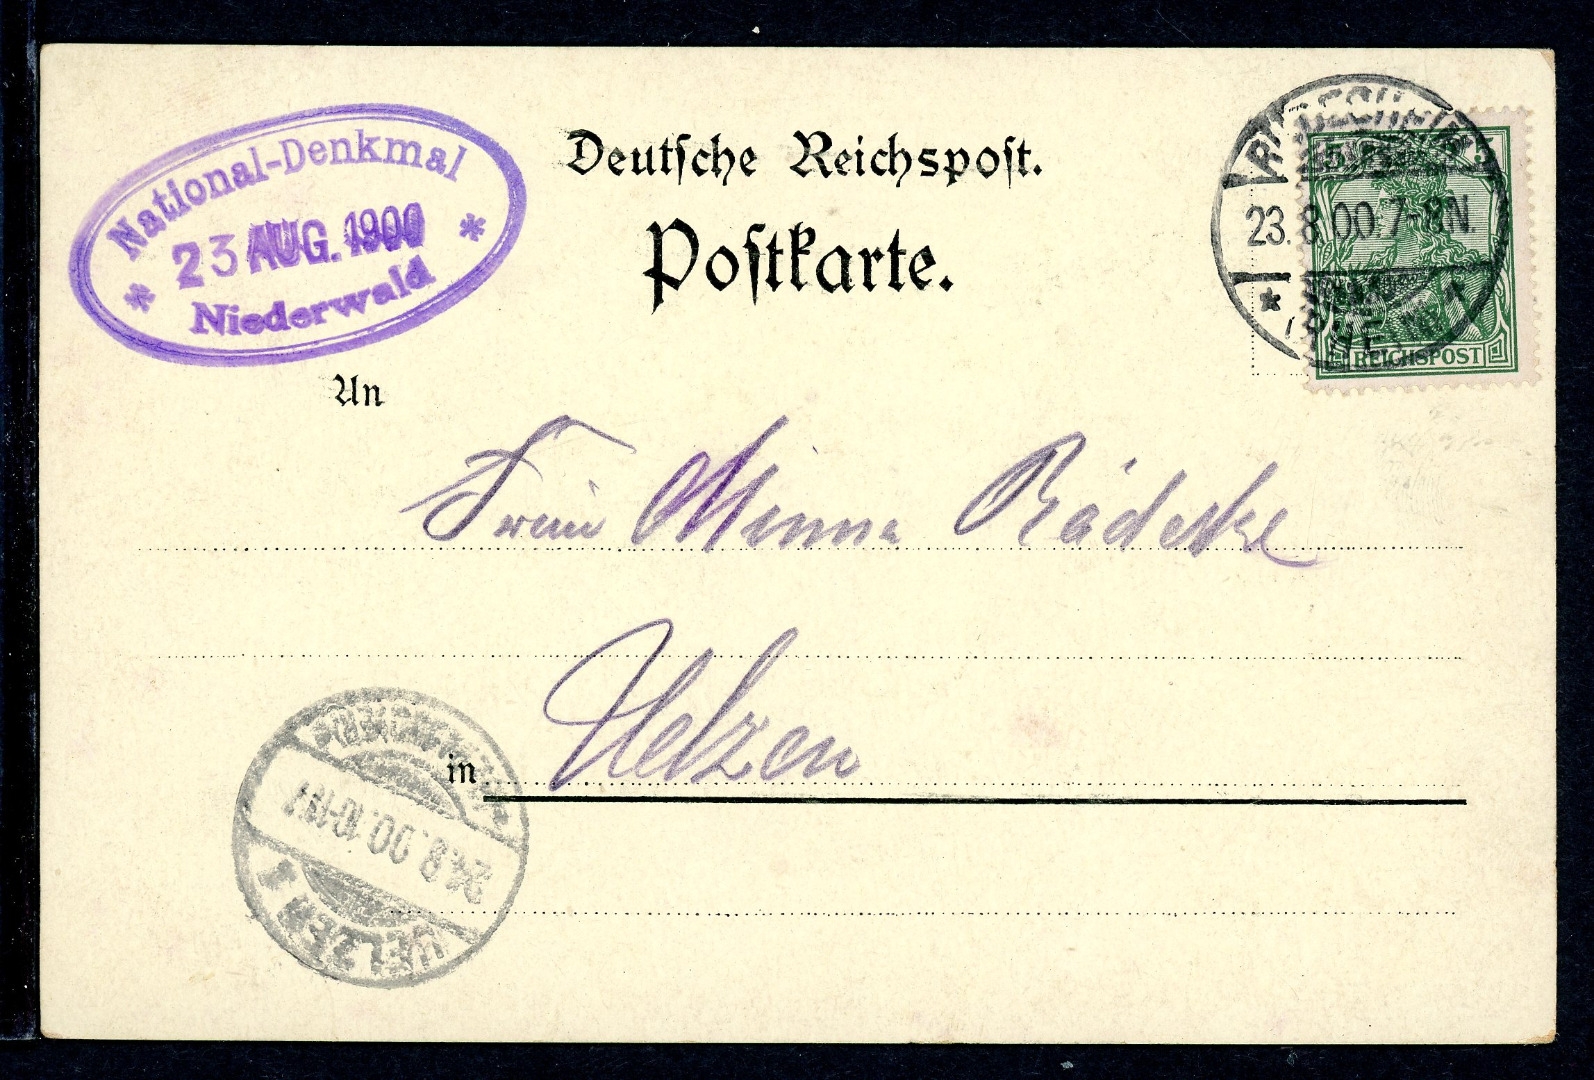 National-Denkmal
23 AUG. 1900
Niederwald
Deutsche Reichspost.
Postkarte.
RÜDESHEIM
23.8.00.7-8N.
(RHEIN)
5 5
REICHSPOST
An
Frau Minna Rädecke
in Uelzen
24.8.00.10-11V
UELZEN 1